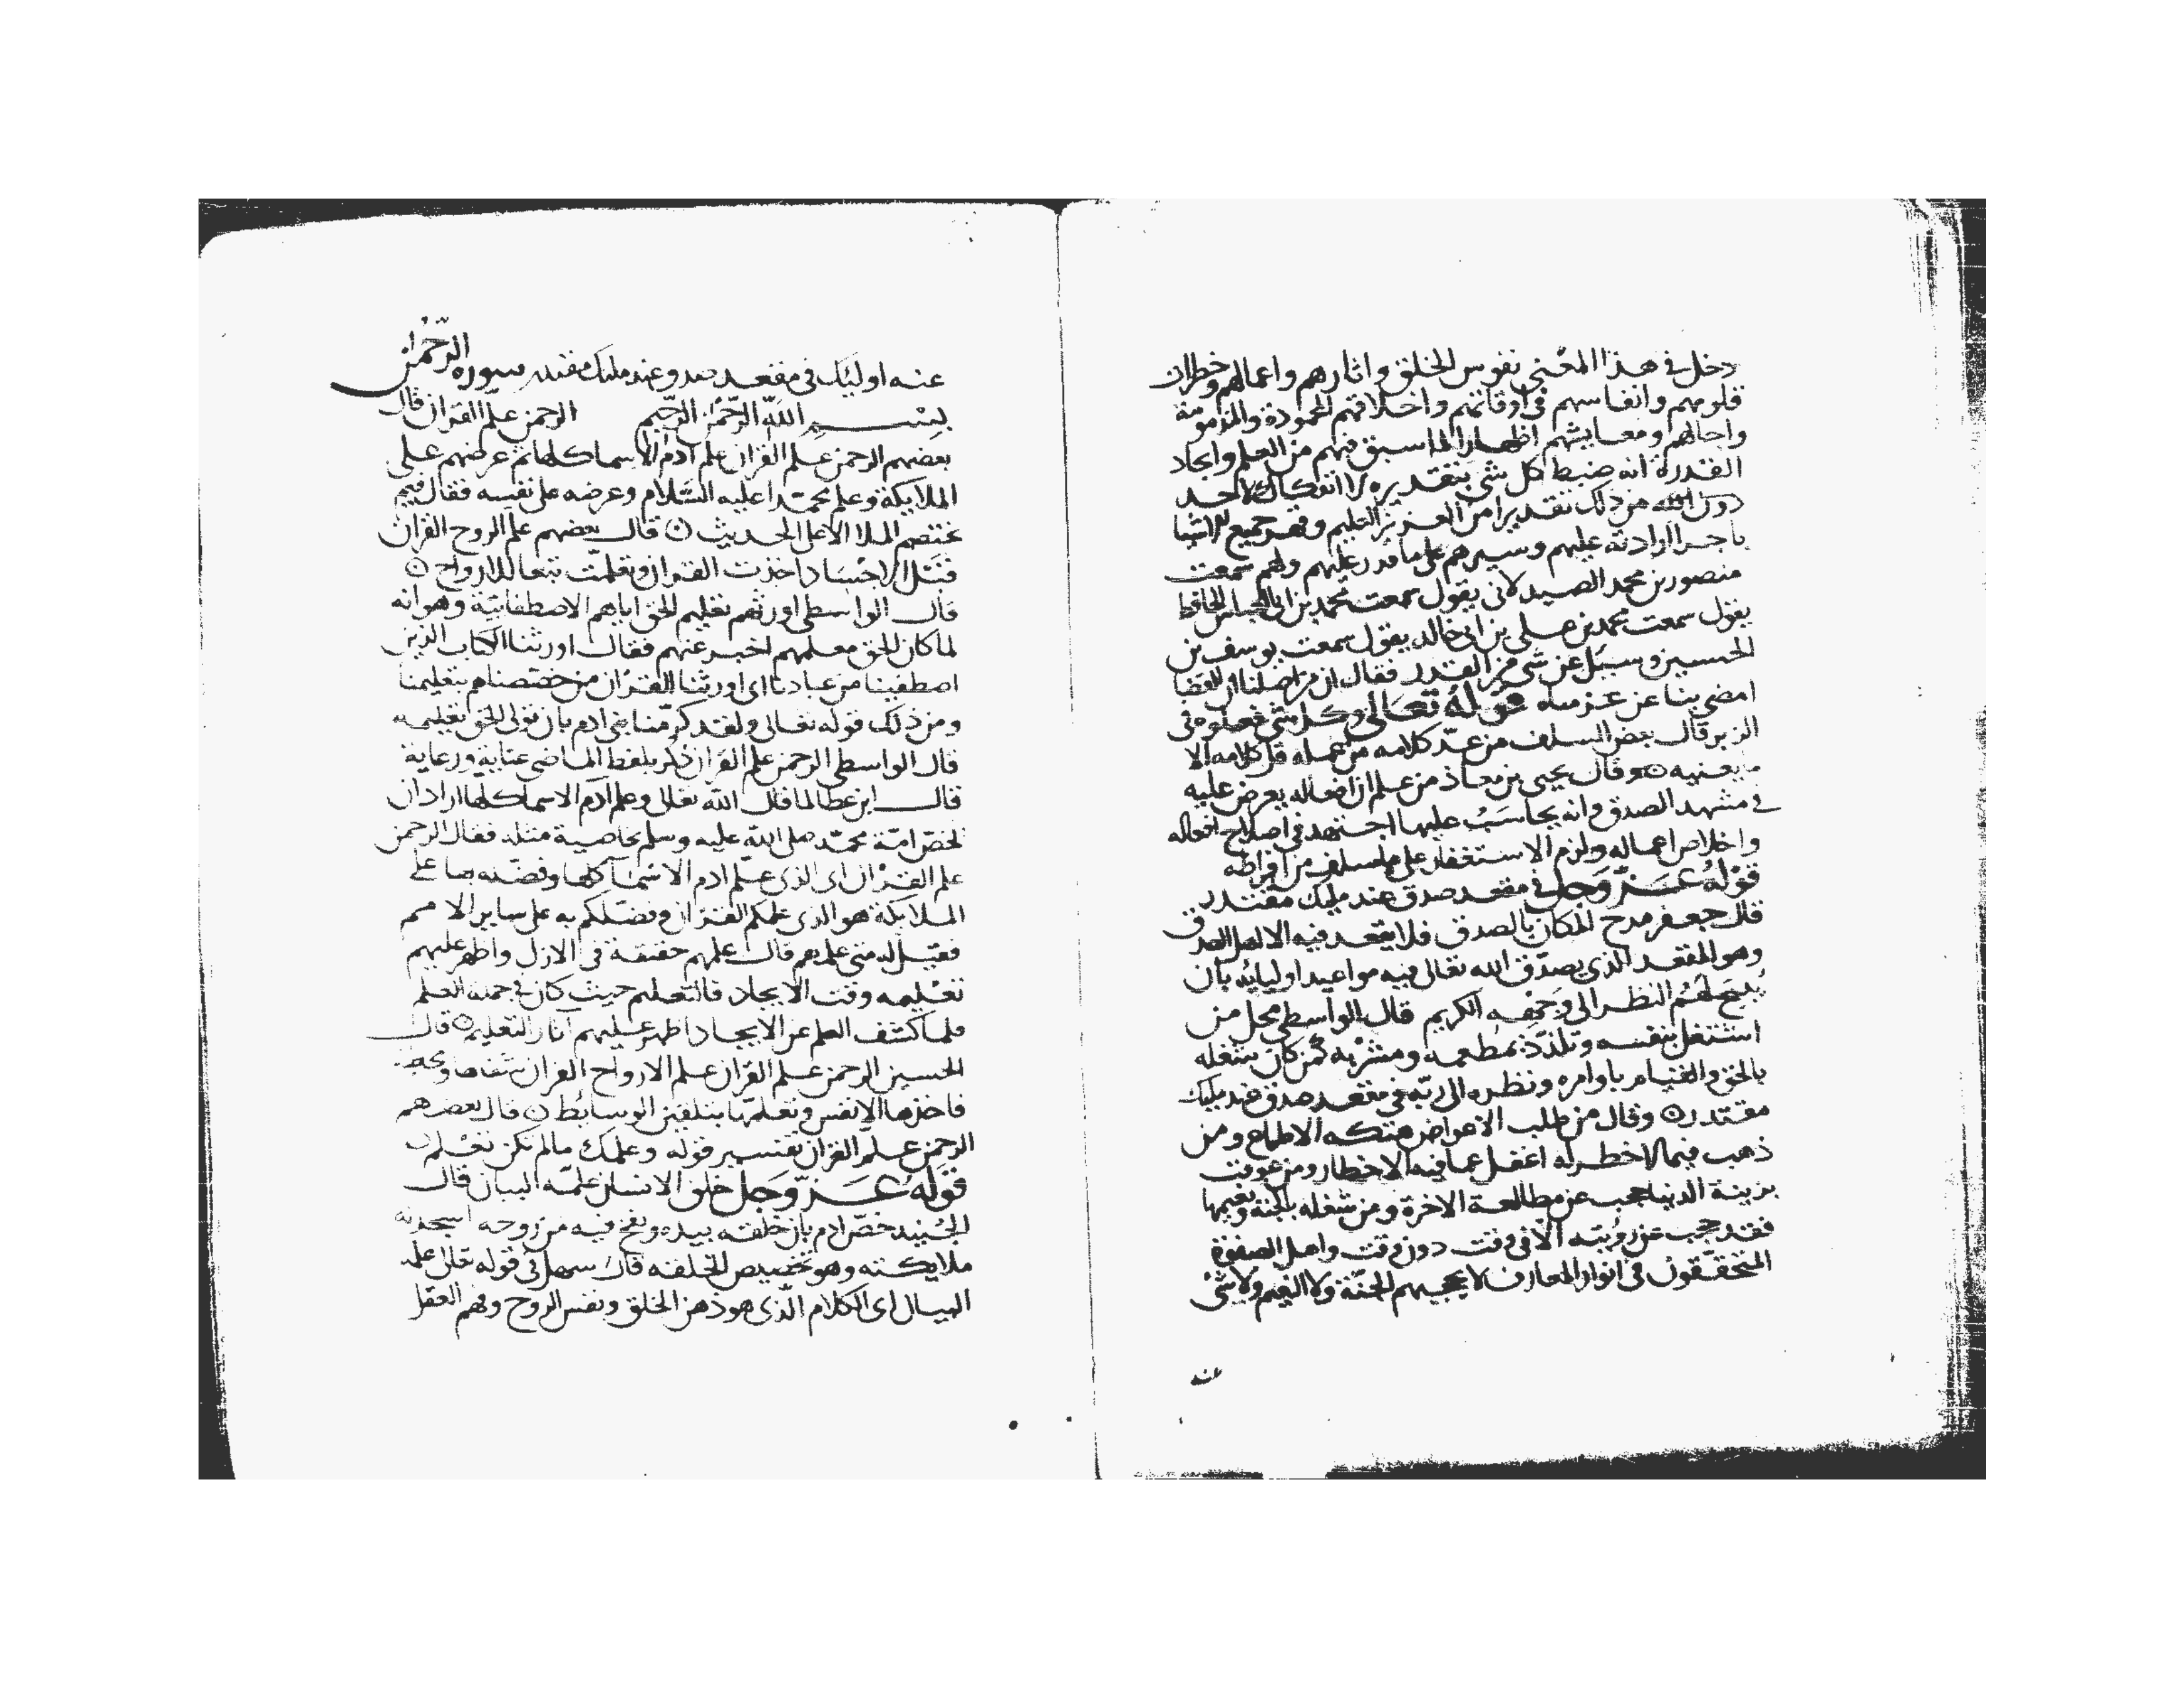 دخل فى هذا المعنى نفوس الخلق واثارهم واعمالهم وخطرات
قلوبهم وانفاسهم فى اوقاتهم واخلاقهم المحمودة والمذمومة
واجالهم ومعايشهم اظهارا لما سبق فيهم من العلم وايجاد
القدرة انه ضبط كل شى بتقديره لا انفكاك لاحد
دون الله من ذلك تقديرا من العزيز العليم وقهر جميع الاشيا
باجرا ارادته عليهم وسيرهم على ما قدر عليهم ولهم سمعت
منصور بن محمد الصيدلانى يقول سمعت محمد بن ابى الحافظ
يقول سمعت محمد بن على بن ابى خالد يقول سمعت يوسف بن
الحسين وسيل عن شى من القدر فقال ان من اصلنا ان القضا
امضى بنا عن عزمنا قوله تعالى وكل شى فعلوه فى
الزبر قال بعض السلف من عد كلامه من عمله قل كلامه الا
ما يعنيه وقال يحيى بن معاذ من علم ان افعاله يعرض عليه
فى مشهد الصدق وانه يحاسب عليها اجتهد فى اصلاح افعاله
واخلاص اعماله ولزم الاستغفار على ما سلف من افراطه
قوله عز وجل فى مقعد صدق عند مليك مقتدر
قال جعفر مدح المكان بالصدق فلا يقعد فيه الا اهل الصدق
وهو المقعد الذى يصدق الله تعالى فيه مواعيد اوليايه بان
يبيح لهم النظر الى وجهه الكريم قال الواسطى محل من
اشتغل بنفسه وتلذذ بمطعمه ومشربه كمن كان شغله
بالحق والقيام باوامره ونظره الى ربه فى مقعد صدق عند مليك
مقتدر وقال من طلب الاعواض هتكه الاطماع ومن
ذهب فيما لا خطر له اغفل عما فيه الاخطار ومن عوقت
بزينة الدنيا حجب عن مطالعة الاخرة ومن شغله بالجنة ونعيمها
فقد حجب عن رؤيته الا فى وقت دون وقت واهل الصفوة
المتحققون فى انوار المعارف لا يحجبهم الجنة ولا النعيم ولا شى
عند
عنه اوليك فى مقعد صدق عند مليك مقتدر سورة الرحمن
بسم الله الرحمن الرحيم الرحمن علم القران قال
بعضهم الرحمن علم القران علم ادم الاسما كلها ثم عرضهم على
الملايكة وعلم محمدا عليه السلام وعرضه على نفسه فقال فيم
يختصم الملا الاعلى الحديث قال بعضهم علم الروح القران
قبل الاجساد اخذت القران وتعلمت تبعا للارواح
قال الواسطى اورثهم تعليم الحق اياهم الاصطفائية وهو انه
لما كان الحق معلمهم اخبر عنهم فقال اورثنا الكتاب الذين
اصطفينا من عبادنا اى اورثنا القران من خصصناهم بتعليمنا
ومن ذلك قوله تعالى ولقد كرمنا بنى ادم بان تولى الحق تعليمه
قال الواسطى الرحمن علم القران ذكر بلفظ الماضى عناية ورعاية
قال ابن عطا لما قال الله تعالى وعلم آدم الاسما كلها اراد ان
يخص امة محمد صلى الله عليه وسلم بخاصية مثله فقال الرحمن
علم القران اى الذى علم ادم الاسما كلها وفضله بها على
الملايكة هو الذى علمكم القران وفضلكم به على ساير الامم
فقيل له متى علمهم قال علمهم حقيقة فى الازل واظهر عليهم
تعليمه وقت الايجاد فالتعليم حيث كان فى جملة العلم
فلما كشف العلم عن الايجاد اظهر عليهم آثار التعليم قال
الحسين الرحمن علم القران علم الارواح القران شفاها
فاخذها الانفس وتعلمها بتلقين الوسايط قال بعضهم
الرحمن علم القران تفسير قوله وعلمك مالم تكن تعلم
قوله عز وجل خلق الانسان علمه البيان قال
الجنيد خص ادم بان خلقه بيده ونفخ فيه من روحه اسجد له
ملايكته وهو تخصيص الخلقه قال سهل فى قوله تعالى علمه
البيان اى الكلام الذى هو ذهن الخلق ونفس الروح وفهم العقل